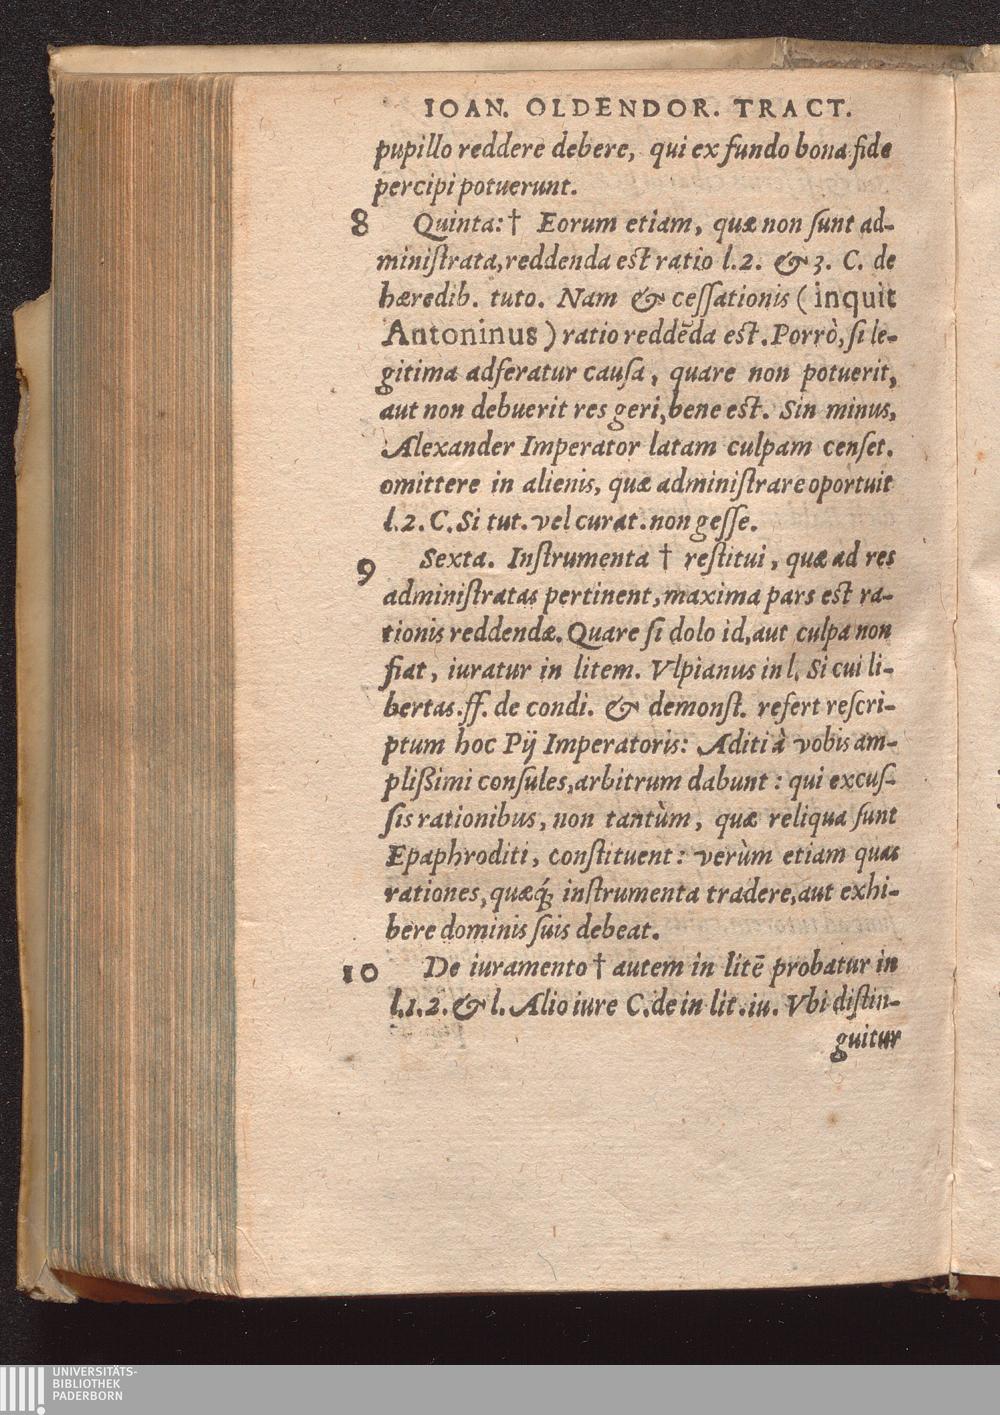 IOAN. OLDENDOR. TRACT.
pupillo reddere debere, qui ex fundo bona fide
percipi potuerunt.
8 Quinta: † Eorum etiam, quæ non ſunt ad-
miniſtrata, reddenda eſt ratio l.2. & 3. C. de
hæredib. tuto. Nam & ceſſationis ( inquit
Antoninus ) ratio reddẽda eſt. Porrò, ſi le-
gitima adferatur cauſa, quare non potuerit,
aut non debuerit res geri, bene eſt. Sin minus,
Alexander Imperator latam culpam cenſet.
omittere in alienis, quæ adminiſtrare oportuit
l.2. C. Si tut. vel curat. non geſſe.
9 Sexta. Inſtrumenta † reſtitui, quæ ad res
adminiſtratas pertinent, maxima pars eſt ra-
tionis reddendæ. Quare ſi dolo id, aut culpa non
fiat, iuratur in litem. Vlpianus in l. Si cui li-
bertas. ff. de condi. & demonſt. refert reſcri-
ptum hoc Pij Imperatoris: Aditi à vobis am-
pliſſimi conſules, arbitrum dabunt : qui excuſ-
ſis rationibus, non tantùm, quæ reliqua ſunt
Epaphroditi, conſtituent : verùm etiam quas
rationes, quæq́; inſtrumenta tradere, aut exhi-
bere dominis ſuis debeat.
10 De iuramento † autem in litẽ probatur in
l.1.2. & l. Alio iure C. de in lit. iu. Vbi diſtin-
guitur
UNIVERSITÄTS-
BIBLIOTHEK
PADERBORN